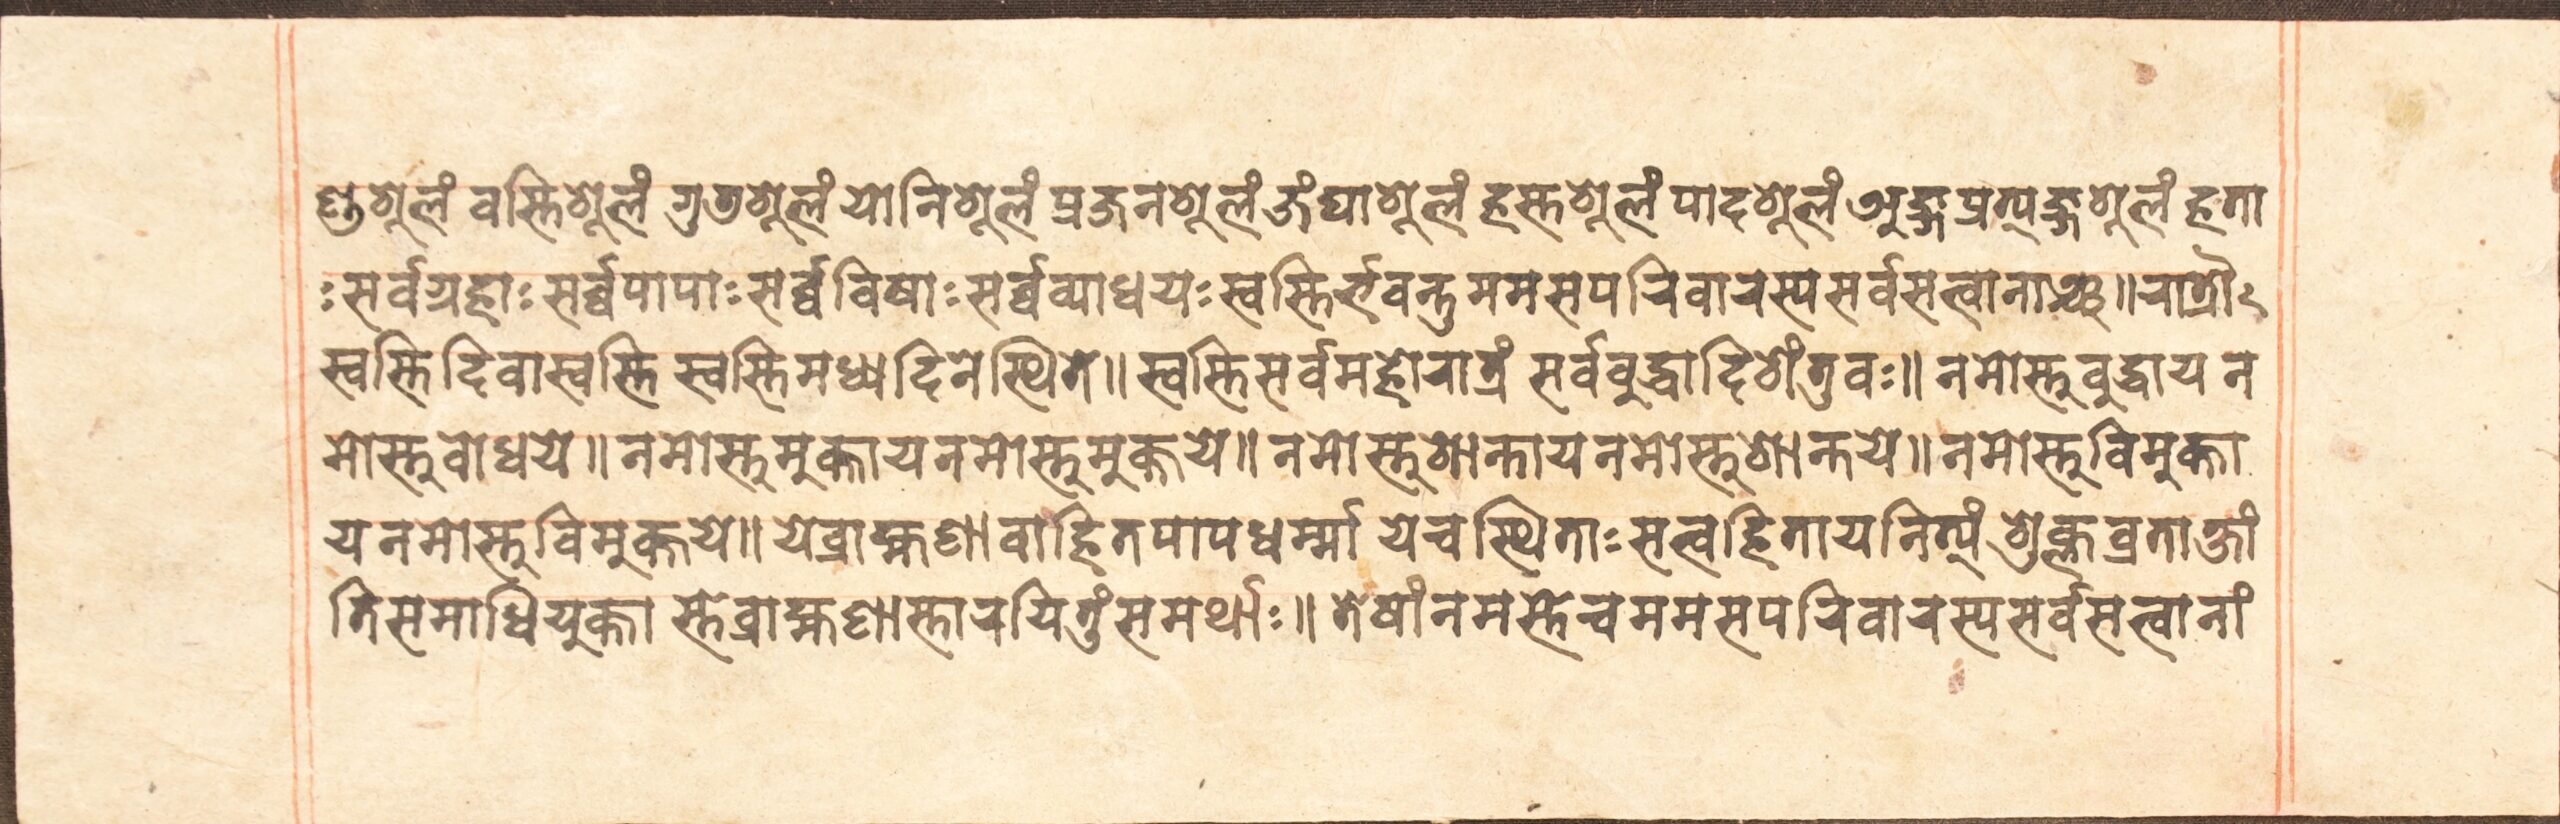 ण्डशूलं वस्तिशूलं गुडशूलं योनिशूलं प्रजनशूलं जंघाशूलं हस्तशूलं पादशूलं अङ्गप्रत्यङ्गशूलं हता
ः सर्वग्रहाः सर्व्वपापाः सर्व्वविषाः सर्व्वव्याधयः स्वस्तिर्भवन्तु मम सपरिवारस्य सर्वसत्वानाञ्च ॥ रात्रौ
स्वस्ति दिवा स्वस्ति स्वस्ति मध्यदिने स्थिते ॥ स्वस्ति सर्वमहोरात्रं सर्वबुद्धादिशंतु वः ॥ नमोस्तु बुद्धाय न
मोस्तु बोधये ॥ नमोस्तु मुक्ताय नमोस्तु मुक्तये ॥ नमोस्तु शान्ताय नमोस्तु शान्तये ॥ नमोस्तु विमुक्ता
य नमोस्तु विमुक्तये ॥ ये ब्राह्मणा वाहितपापधर्म्मा ये च स्थिताः सत्वहिताय नित्यं शुक्लव्रता
तिसमाधियुक्ता स्ते ब्राह्मणास्तारयितुं समर्थाः ॥ तेषां नमस्ते च मम सपरिवारस्य सर्वसत्वानां